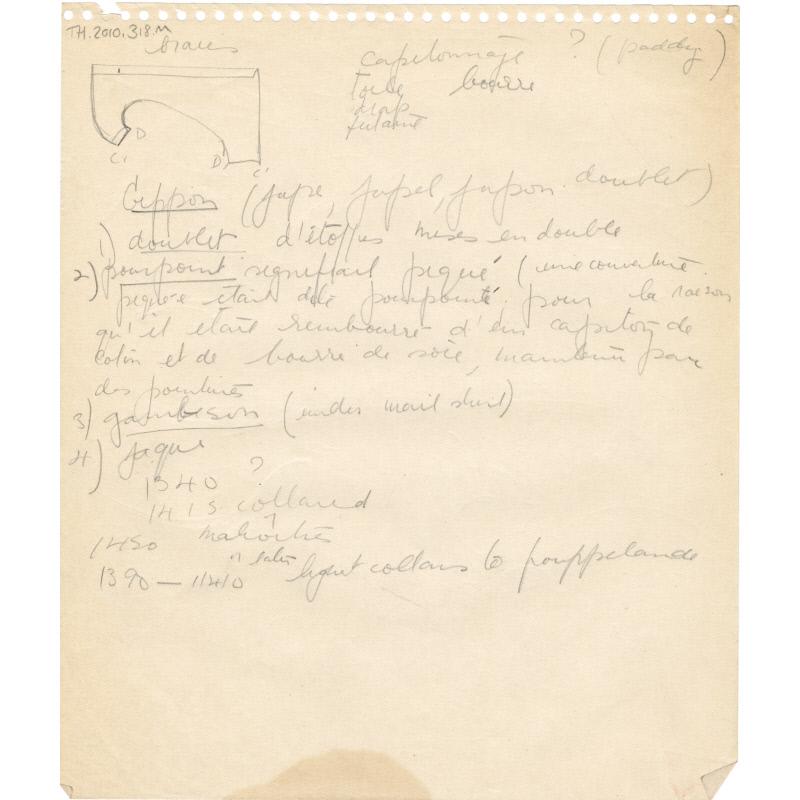 TH.2010.318.M
braies
capitonnage ? (padding)
toile bourre
drap
futaine
D
C
D'
C'
Gippon (jupe, jupel, jupon doublet)
1) doublet d'étoffes mises en double
2) pourpoint signifiait piqué (une couverture
piquée était dite pourpointé pour la raison
qu'il était rembourré d'un capiton de
coton et de bourre de soie, maintenu par
des pointures
3) gambeson (under mail shirt)
4) jaque
1340 ?
1415 collared
1450 mahoitres
1390 — 1410 collars to houppelande